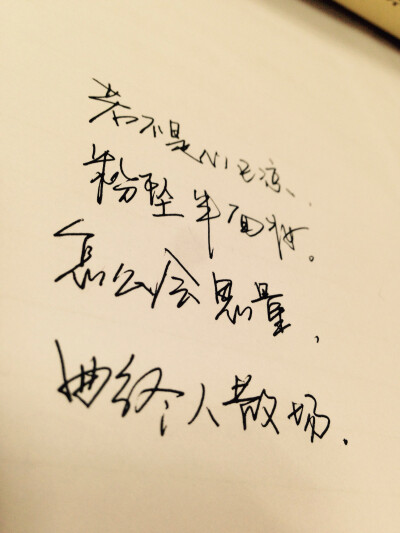 若不是心已凉、
粉坠半面妆。
怎么会思量,
曲终人散场.